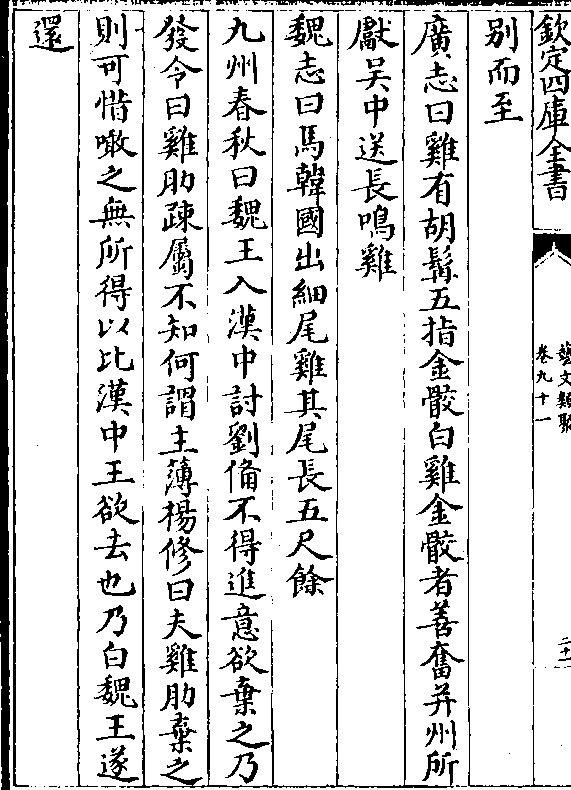 欽定四庫全書
藝文類聚
卷九十一
二十一
別而至
廣志曰雞有胡髯五指金骹白雞金骹者善奮并州所
獻吴中送長鳴雞
魏志曰馬韓國出細尾雞其尾長五尺餘
九州春秋曰魏王入漢中討劉備不得進意欲棄之乃
發令曰雞肋疎屬不知何謂主薄楊修曰夫雞肋棄之
則可惜噉之無所得以比漢中王欲去也乃白魏王遂
還